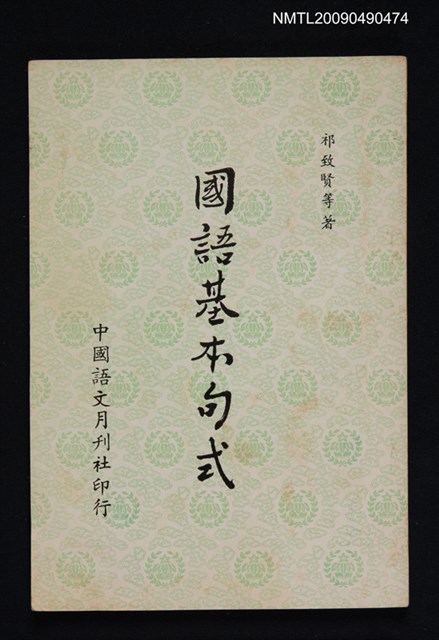 NMTL20090490474
祁致賢等著
國語基本句式
中國語文月刊社印行